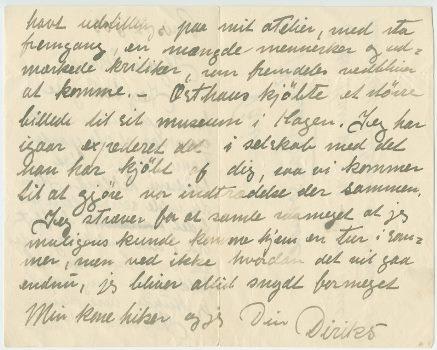 havt udstilling paa mit atelier, med stor
fremgang, en mængde mennesker og ud-
mærkede kritiker, som fremdeles vedbliver
at komme. - Osthaus kjöbte et större
billede til sit museum i Hagen. Jeg har
igaar expederet det i selskab med det
han har kjöbt af dig, saa vi kommer
til at gjöre vor indtrædelse der sammen.
Jeg stræver for at samle saameget at jeg
muligens kunde komme hjem en tur i som-
mer, men ved ikke hvordan det vil gaa
endnu, jeg bliver altid snydt for meget
Min kone hilser og jeg Din Diriks